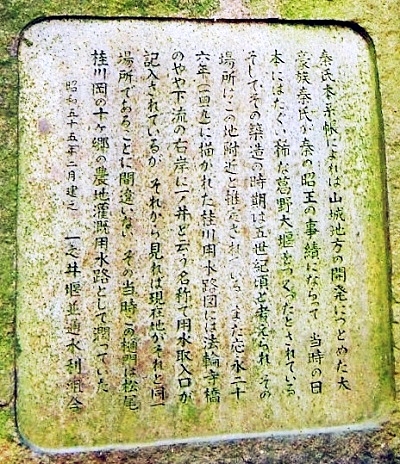 秦氏本系帳によれば山城地方の開発につとめた大
豪族秦氏が秦の昭王の事績にならって 当時の日
本にはたぐい稀な葛野大堰をつくったとされている
そしてその築造の時期は五世紀頃と考えられ その
場所はこの地附近と推定されている また応永二十
六年(一四一九)に描かれた桂川用水路図には法輪寺橋
のやや下流の右岸に一ノ井と云う名称で用水取入口が
記入されているが それから見れば現在地がそれと同一
場所であることに間違いない その当時この樋門は松尾
桂川岡の十ヶ郷の農地灌漑用水路として潤っていた
昭和五十五年二月建之 一之井堰並通水利組合